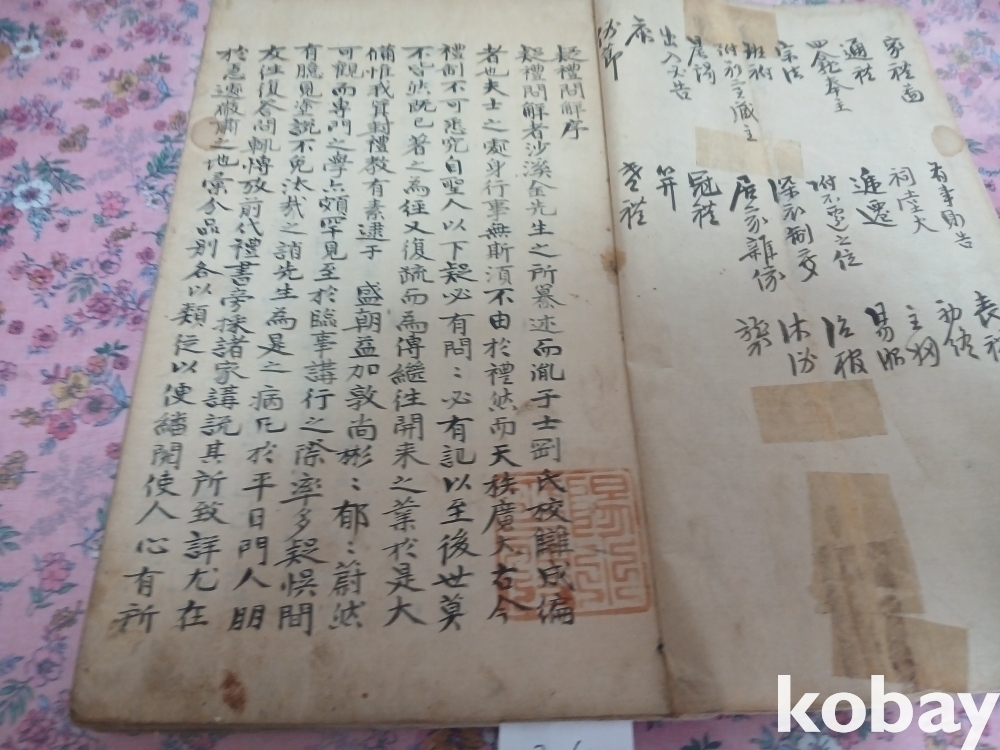 家禮圖
通禮
四龕奉主
宗法
班祔
晨謁
出入必告
參
俗節
有事則告
祠堂火
遞遷
祔不遷之位
深衣制度
居家雜儀
冠禮
笄
昏禮
喪禮
初終
主婦
易服
治棺
沐浴
襲
疑禮問解序
疑禮問解者沙溪金先生之所纂述而胤子士剛氏校讎成編
者也夫士之處身行事無斯須不由於禮然而天秩廣大古今
禮制不可悉究自聖人以下疑必有問〻必有記以至後世莫
不皆然既已著之為經又復疏而為傳繼往開來之業於是大
備惟我箕封禮教有素逮于 盛朝益加敦尚彬〻郁〻蔚然
可觀而專門之學亦頗罕見至於臨事講行之際率多疑悞間
有臆見塗說不免汰哉之誚先生為是之病凡於平日門人朋
友往復答問輒傅攷前代禮書旁採諸家講說其所致詳尤在
於急遽之地彙分品別各以類從以便繙閱使人心有所
kobay